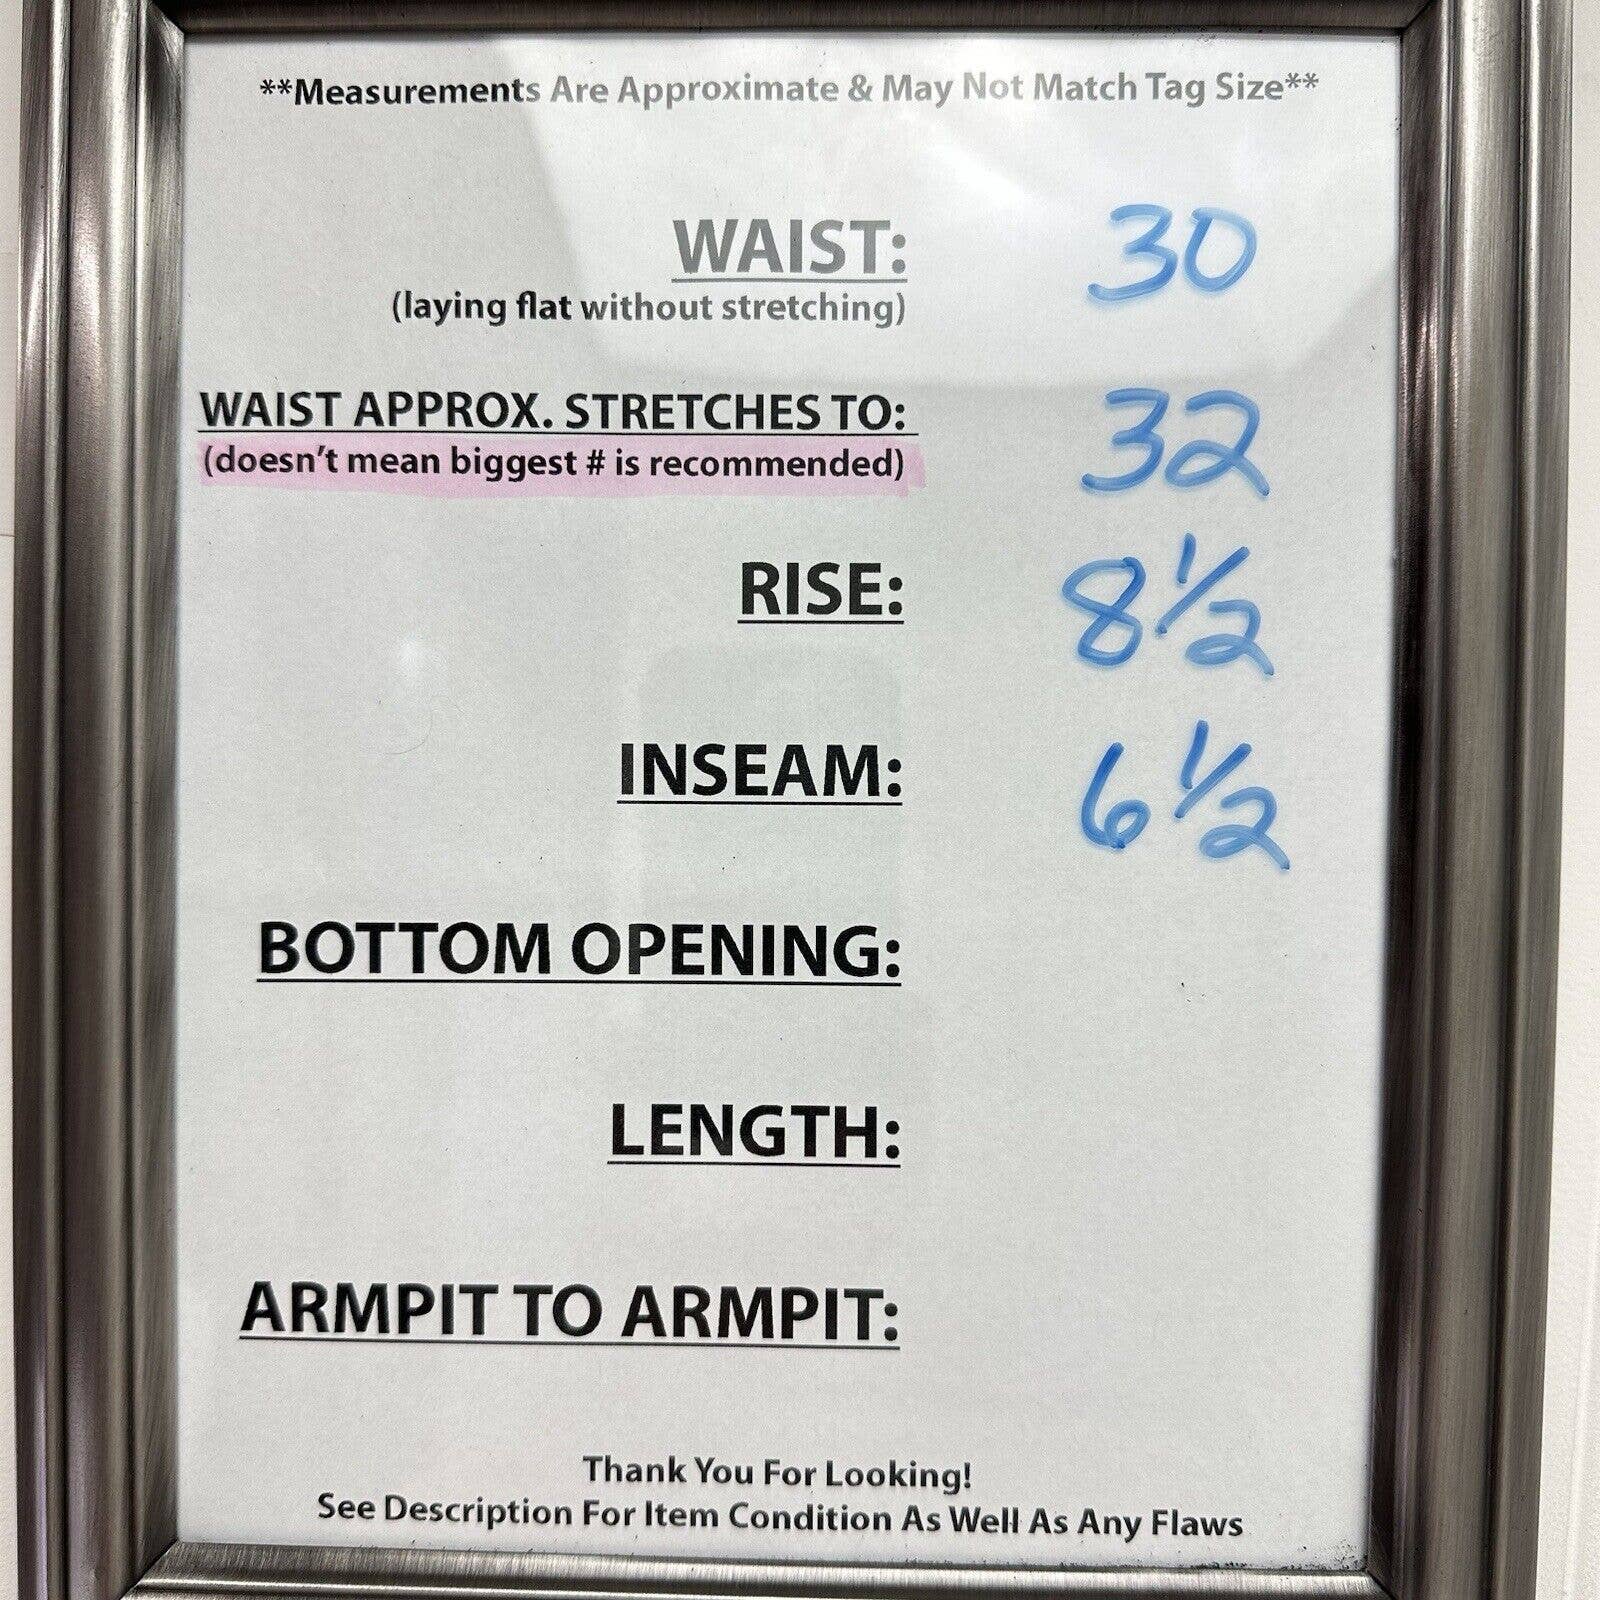 **Measurements Are Approximate & May Not Match Tag Size**
WAIST: 30
(laying flat without stretching)
WAIST APPROX. STRETCHES TO: 32
(doesn't mean biggest # is recommended)
RISE: 8 1/2
INSEAM: 6 1/2
BOTTOM OPENING:
LENGTH:
ARMPIT TO ARMPIT:
Thank You For Looking!
See Description For Item Condition As Well As Any Flaws